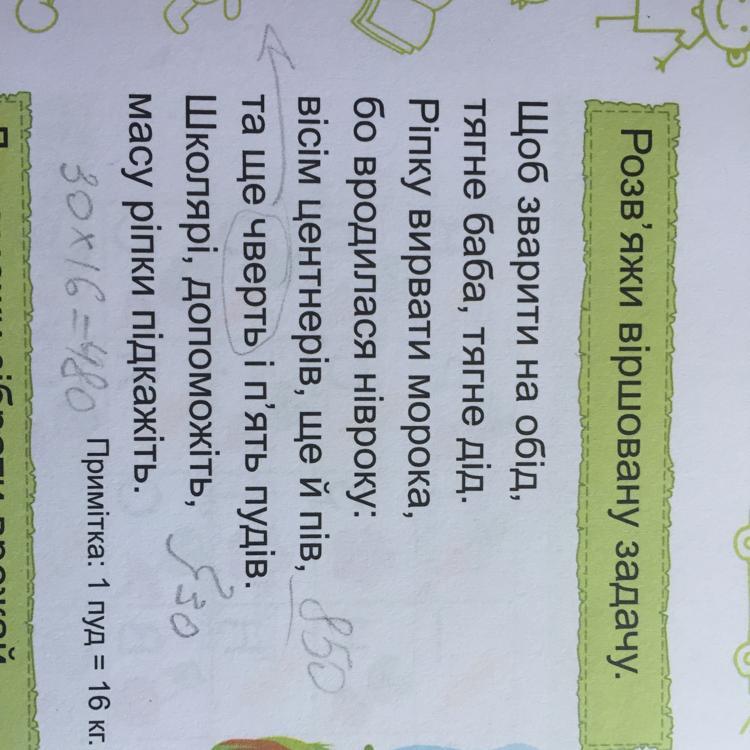 Розв’яжи віршовану задачу.
Щоб зварити на обід,
тягне баба, тягне дід.
Ріпку вирвати морока,
бо вродилася нівроку:
вісім центнерів, ще й пів, 850
та ще чверть і п’ять пудів.
Школярі, допоможіть, 30
масу ріпки підкажіть.
30 х 16 = 480
Примітка: 1 пуд = 16 кг.